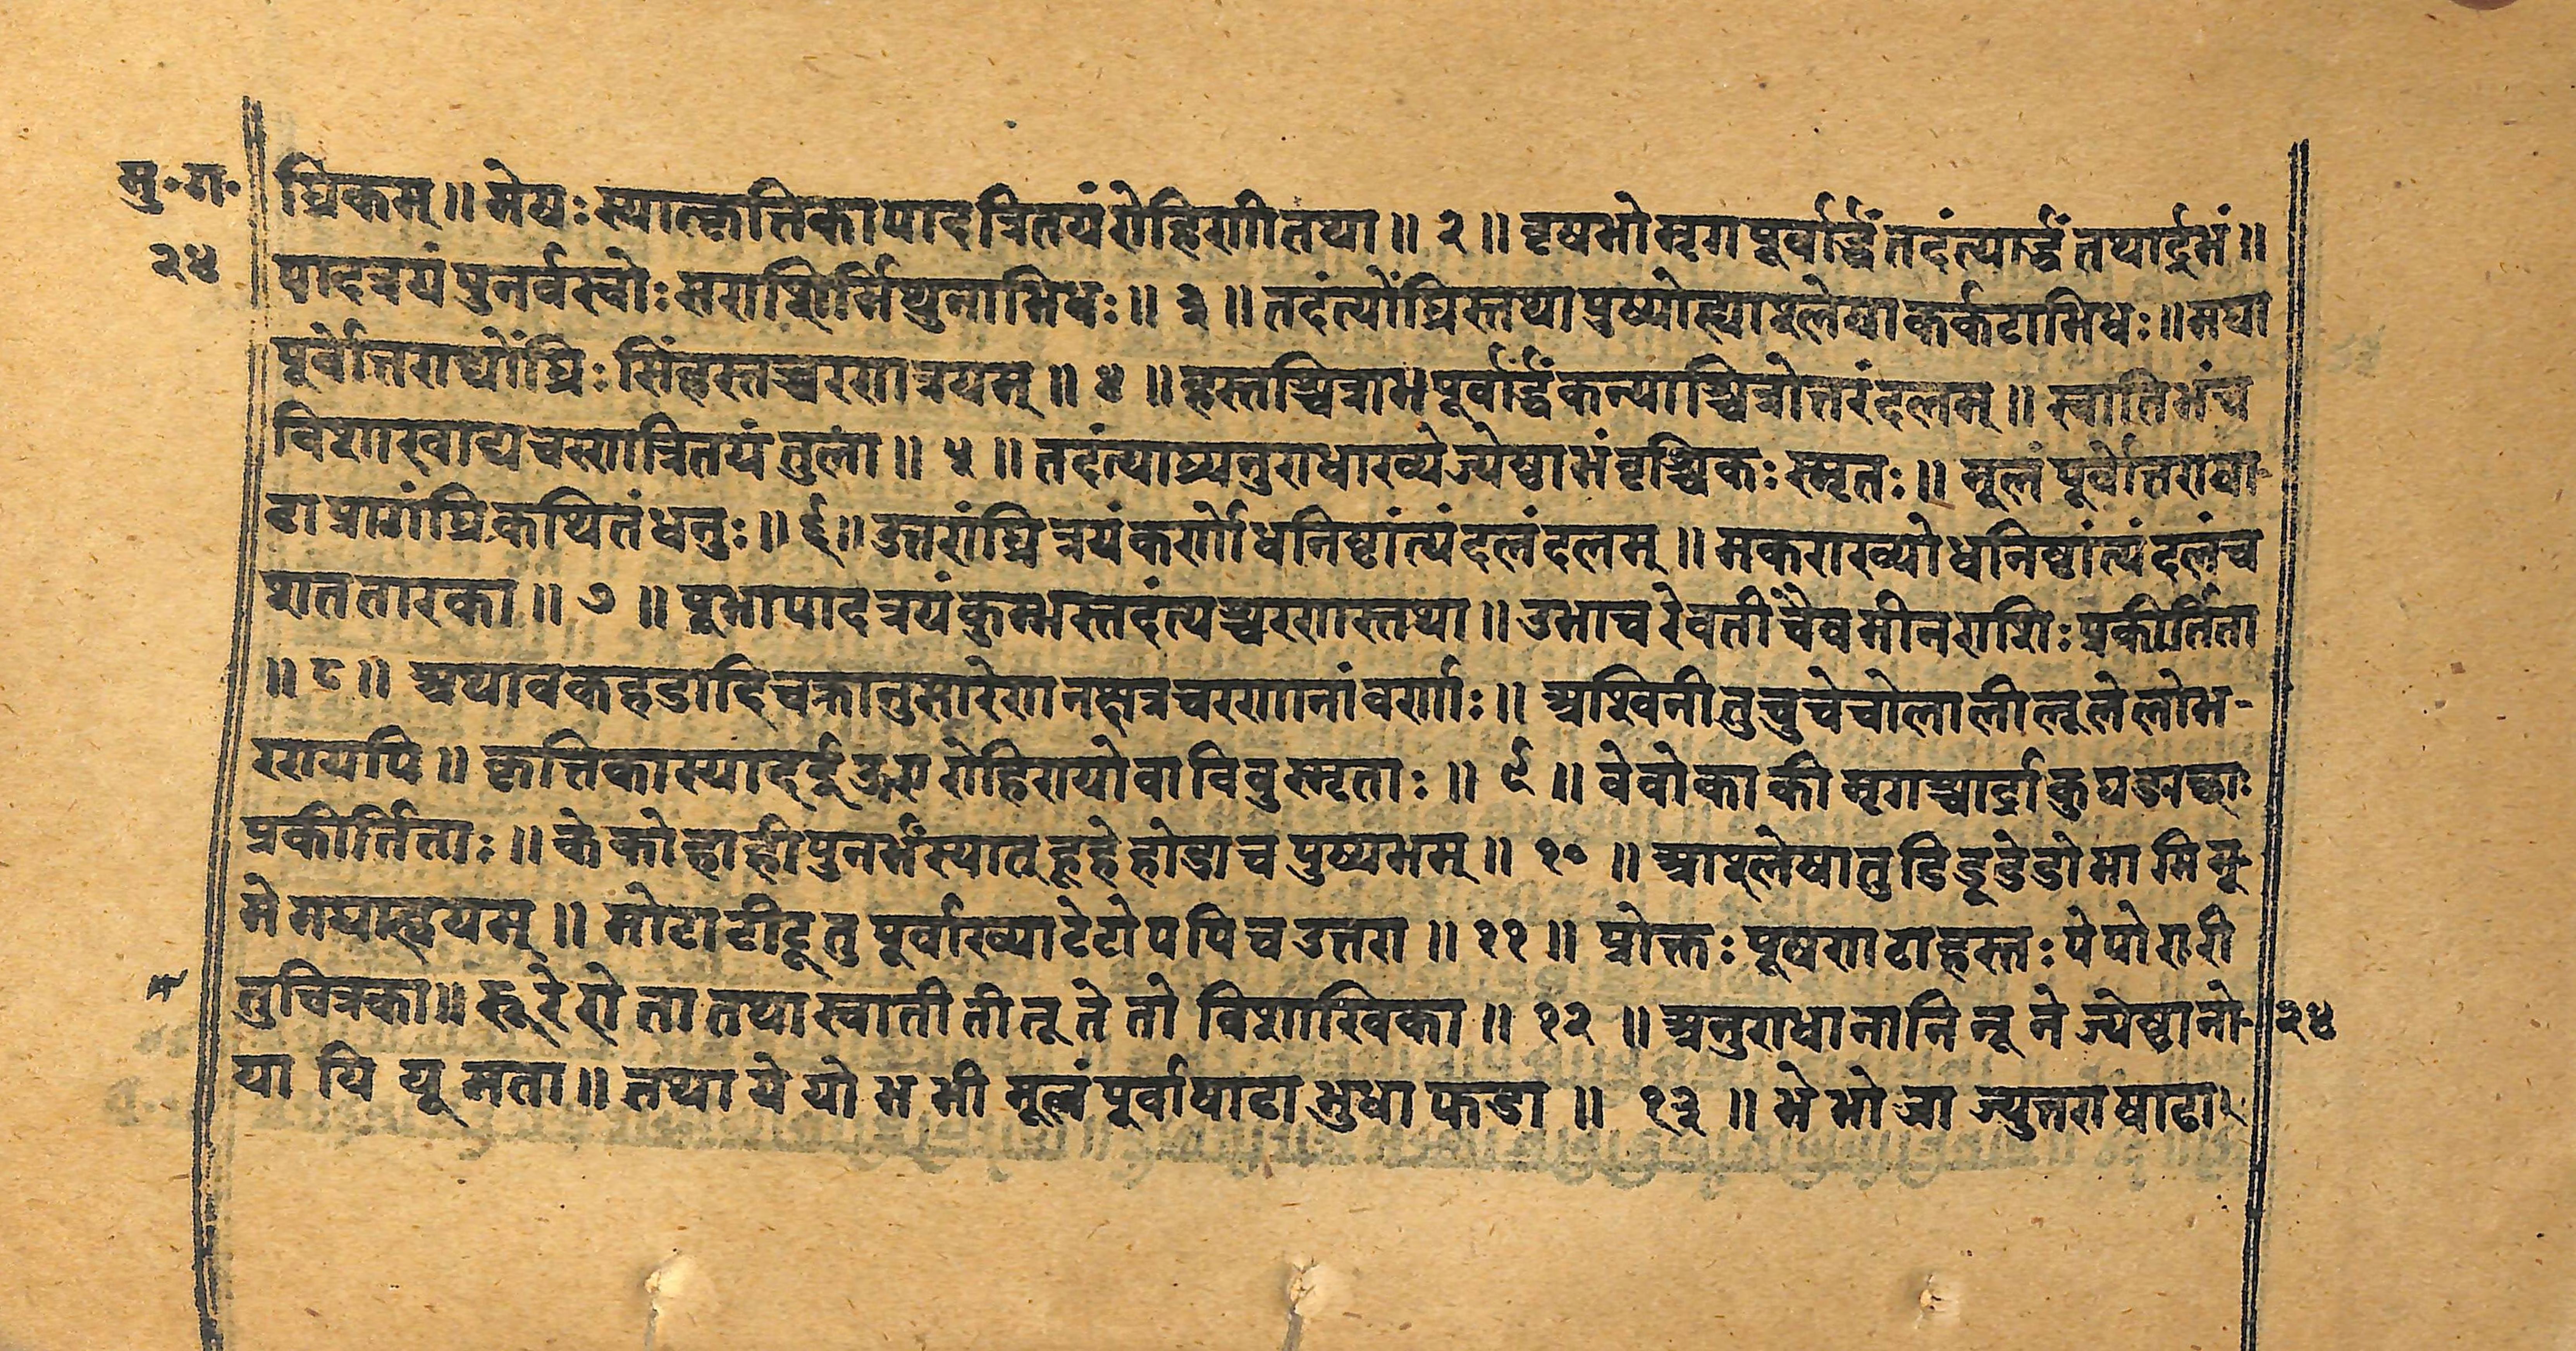 मु॰ग॰
२४
घ्रिकम्॥ मेषः स्यात्कृत्तिकापादत्रितयंरोहिणीतथा॥ २॥ वृषभोमृगपूर्वार्द्धंतदंत्यार्द्धंतथार्द्रभं॥
पादत्रयंपुनर्वस्वोः सराशिर्मिथुनाभिधः॥ ३॥ तदंत्योंघ्रिस्तथापुष्योह्याश्लेषाकर्कटाभिधः॥मघा
पूर्वोत्तराद्योंघ्रिः सिंहस्तच्चरणात्रयम्॥ ४॥ हस्तश्चित्राभपूर्वार्द्धंकन्याश्चित्रोत्तरंदलम्॥ स्वातिभंच
विशाखाद्यचरणात्रितयंतुला॥ ५॥ तदंत्याघ्र्यनुराधाख्येज्येष्ठाभंवृश्चिकः स्मृतः॥ मूलंपूर्वोत्तराषा-
ढाप्रागंघ्रिकथितंधनुः॥ ६॥ उत्तरांघ्रित्रयंकर्णोधनिष्ठांत्यंदलंदलम्॥ मकराख्योधनिष्ठांत्यंदलंच
शततारका॥ ७॥ पूभापादत्रयंकुम्भस्तदंत्यश्चरणस्तथा॥ उभाचरेवतींचैवमीनराशिः प्रकीर्तिता
॥ ८॥ अथावकहडादिचक्रानुसारेणनक्षत्रचरणानांवर्णाः॥ अश्विनीतुचुचेचोलालीलूलेलोभ-
रण्यपि॥ कृत्तिकास्यादईउए रोहिण्योवाविवुस्मृताः॥ ९॥ वेवोकाकीमृगश्चार्द्राकुघङाछाः
प्रकीर्तिताः॥ केकोहाहीपुनर्भंस्यात् हूहेहोडाचपुष्यभम्॥ १०॥ आश्लेषातुडिडूडेडोमामिमू-
मेमघाह्वयम्॥ मोटाटीटूतुपूर्वाख्याटेटोपपिचउत्तरा॥ ११॥ प्रोक्तः पूषणाठाहस्तः पेपोरारी
तुचित्रका॥ रू रे रो ता तथास्वातीतीतूतेतो विशाखिका॥ १२॥ अनुराधानानिनूनेज्येष्ठानो-
२४
या यि यू मता॥ तथा ये यो भ भी मूलंपूर्वाषाढाभुधाफढा॥ १३॥ भेभोजा ज्युत्तराषाढा